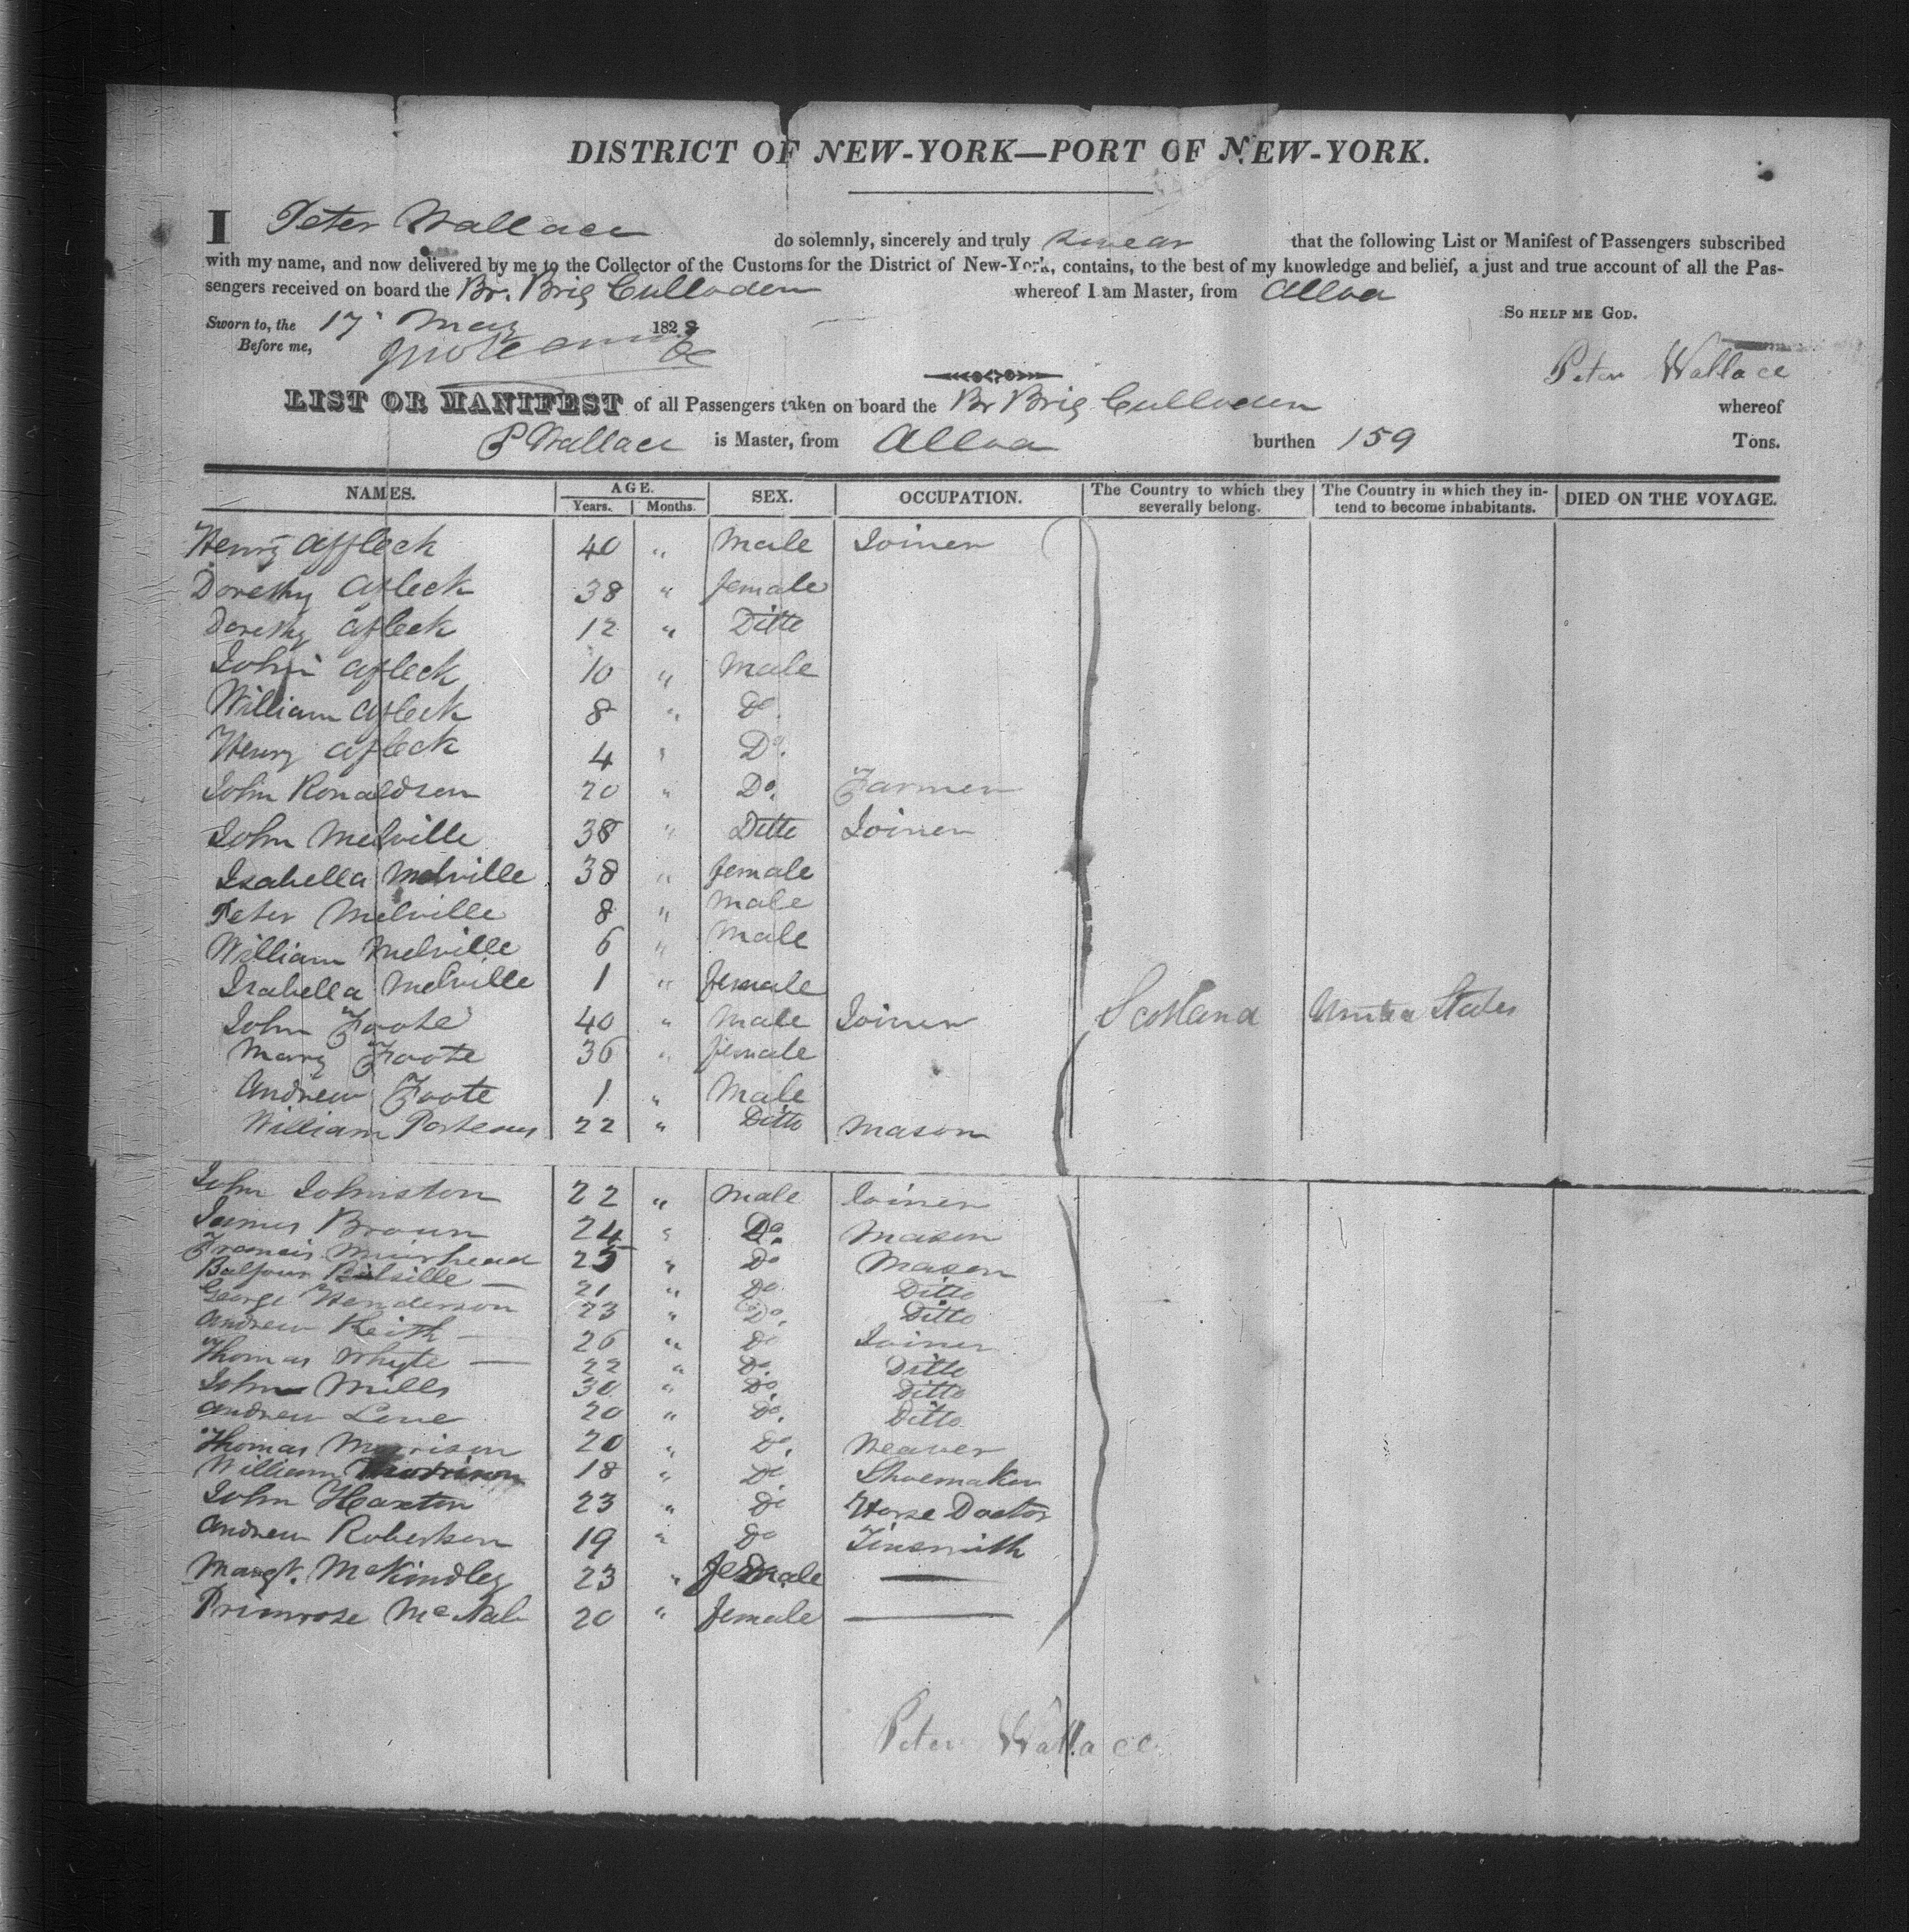 DISTRICT OF NEW-YORK—PORT OF NEW-YORK.
I Peter Wallace do solemnly, sincerely and truly swear that the following List or Manifest of Passengers subscribed
with my name, and now delivered by me to the Collector of the Customs for the District of New-York, contains, to the best of my knowledge and belief, a just and true account of all the Pas-
sengers received on board the Br. Brig Culloden whereof I am Master, from Alloa
So help me God.
Sworn to, the 17 May 1828
Before me,
Peter Wallace
LIST OR MANIFEST of all Passengers taken on board the Br Brig Culloden whereof
P Wallace is Master, from Alloa burthen 159 Tons.
NAMES. AGE. Years. Months. SEX. OCCUPATION. The Country to which they severally belong. The Country in which they in-tend to become inhabitants. DIED ON THE VOYAGE.
Henry Affleck 40 " Male Joiner
Dorethy Afleck 38 " female
Dorethy Afleck 12 " Ditto
John Afleck 10 " Male
William Afleck 8 " Do
Henry Afleck 4 " Do.
John Ronaldson 20 " Do. Farmer
John Melville 38 " Ditto Joiner
Isabella Melville 38 " female
Peter Melville 8 " Male
William Melville 6 " Male
Isabella Melville 1 " female
John Foote 40 " Male Joiner Scotland United States
Mary Foote 36 " female
Andrew Foote 1 " Male
William Porteous 22 " Ditto Mason
John Johnston 22 " Male Joiner
James Broun 24 " Do. Mason
Francis Muirhead 25 " Do Mason
Balfour 21 " Do Ditto
George Henderson 23 " Do. Ditto
Andrew Keith — 26 " Do Joiner
Thomas Whyte — 22 " Do. Ditto
John Mills 30 " Do. Ditto
Andrew 20 " Do. Ditto
Thomas Morrison 20 " Do. Weaver
William 18 " Do Shoemaker
John Haxton 23 " Do Horse Doctor
Andrew Robertson 19 " Do Tinsmith
Margt. McKindley 23 " female —
Primrose McNab 20 " female —
Peter Wallace